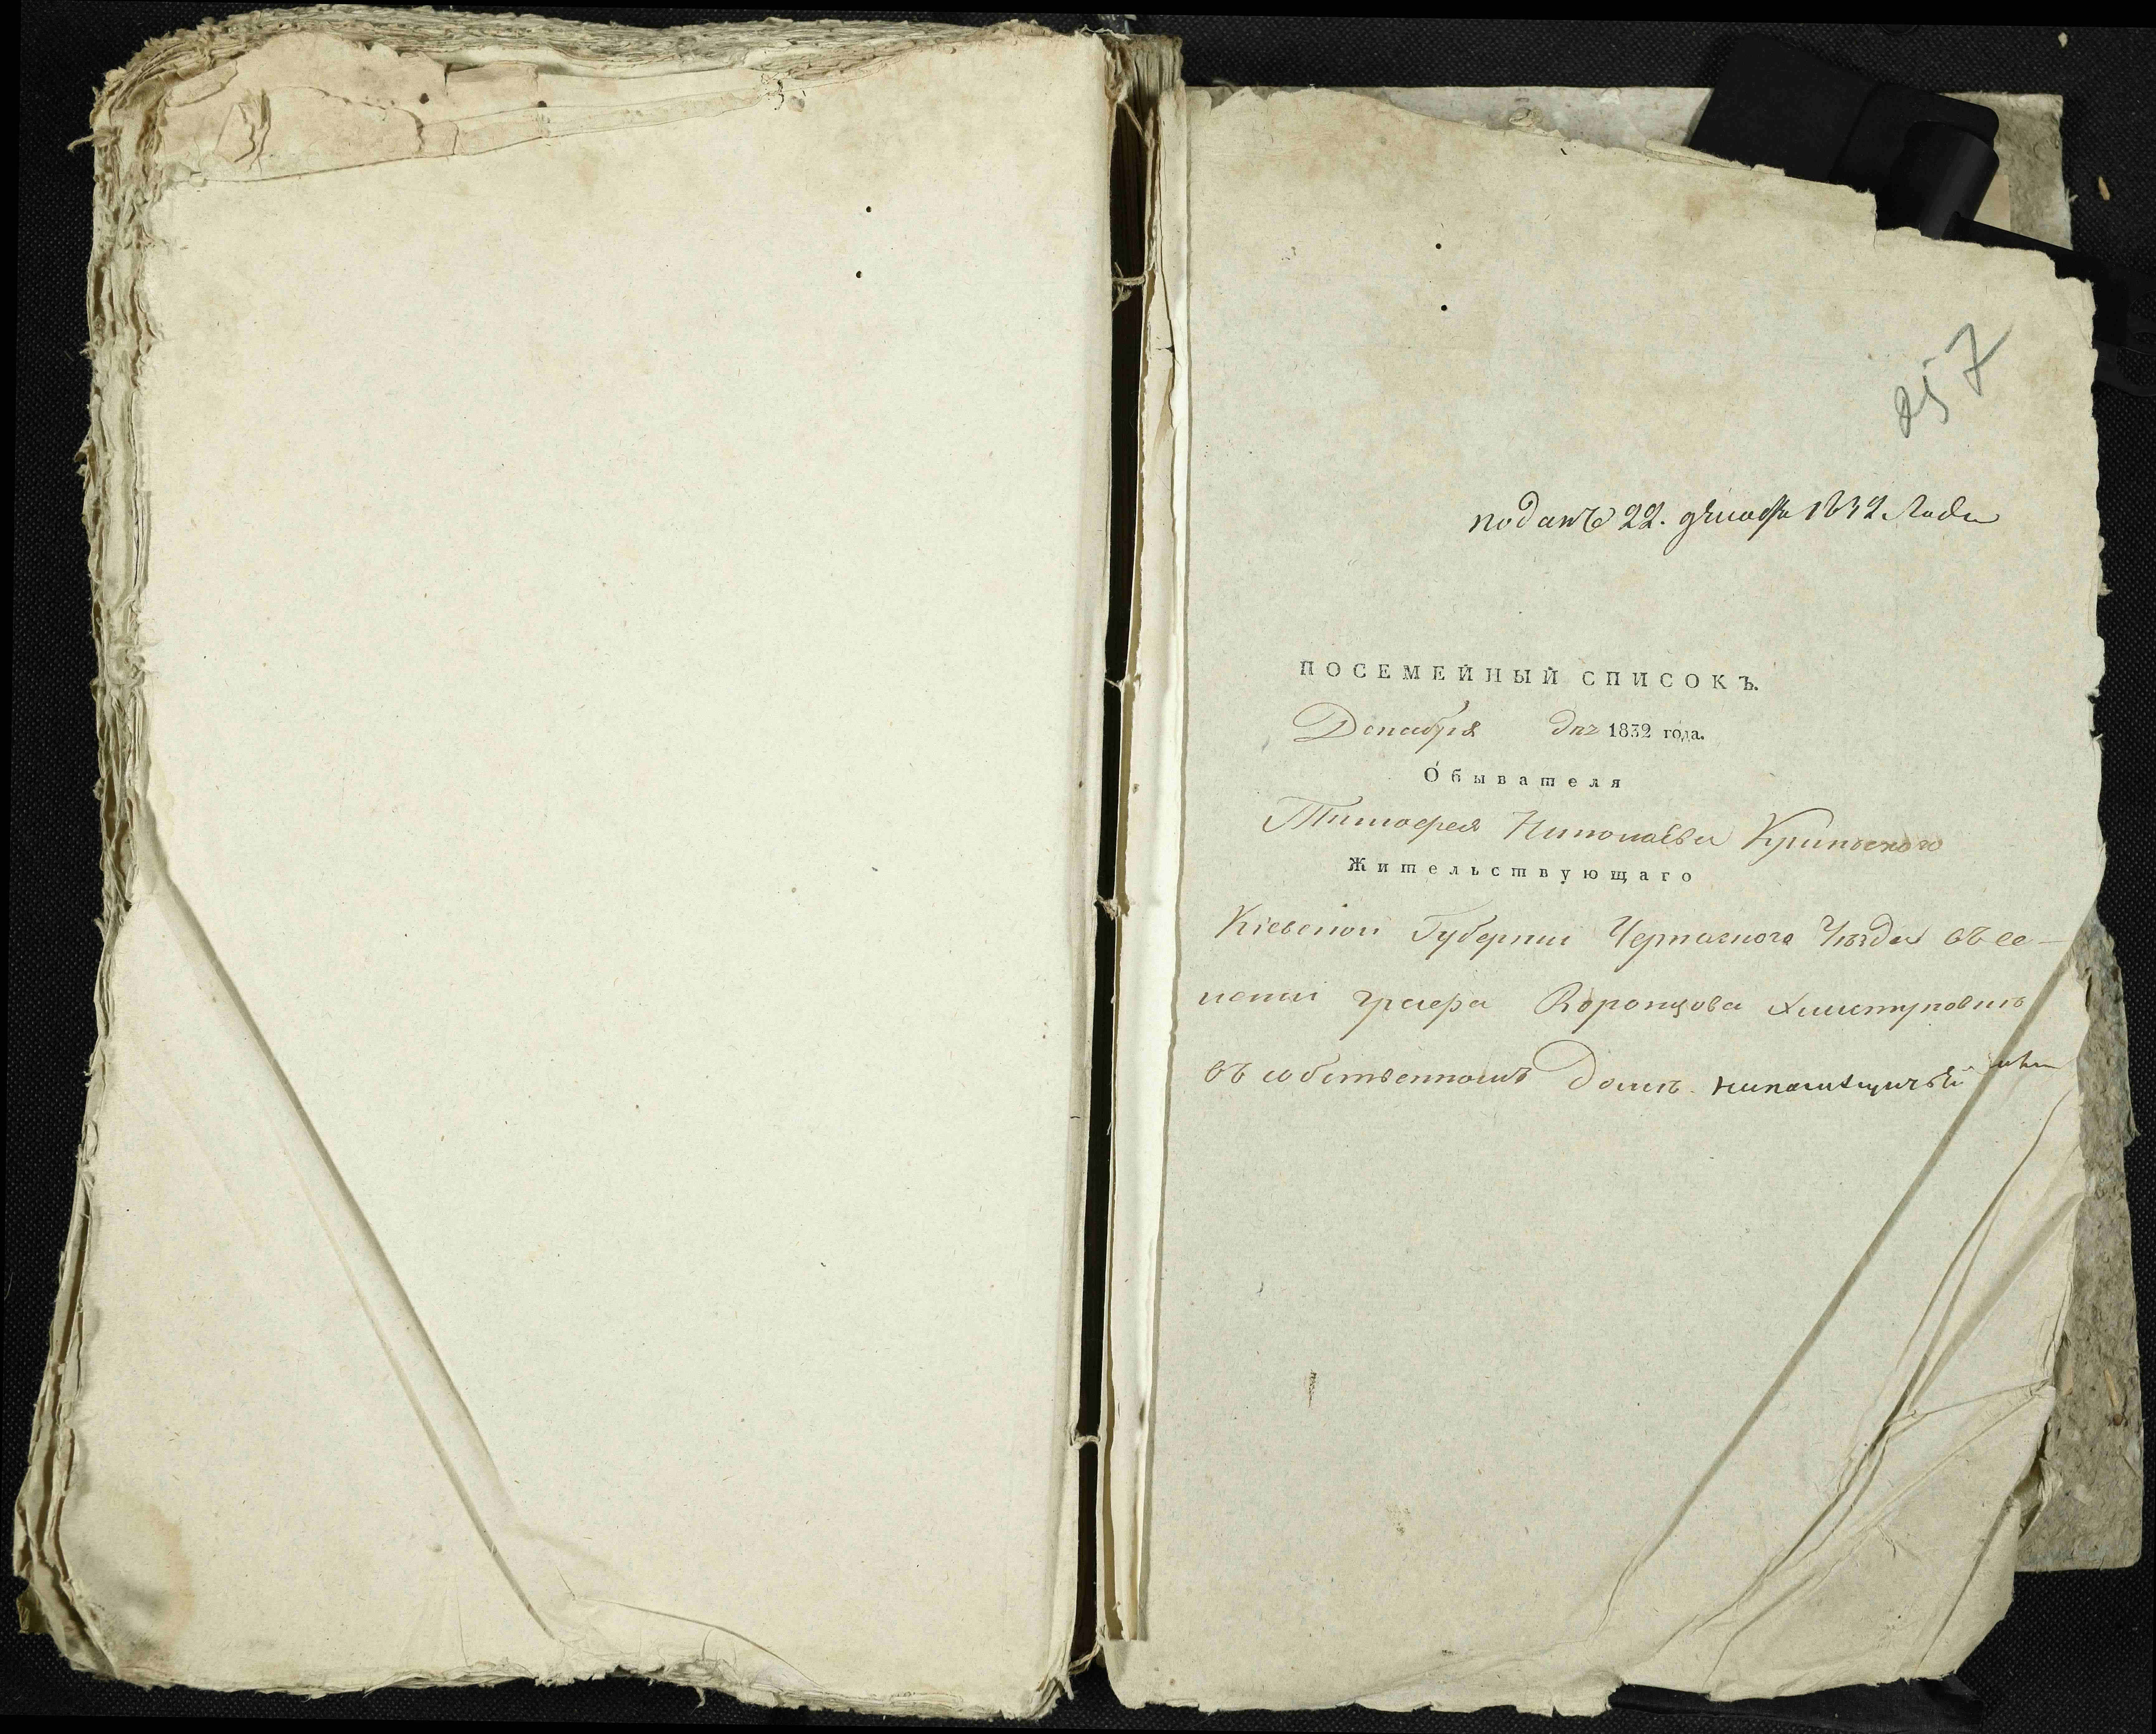 257
поданъ 22. декабря 1832 Года
ПОСЕМЕЙНЫЙ СПИСОКЪ.
Декабря дня 1832 года.
Обывателя
Тимофея Николаева Крипского
Жительствующаго
Кіевской Губерніи Черкаского Уѣзда въ се-
леніи графа Воронцова
въ собственномъ Домѣ